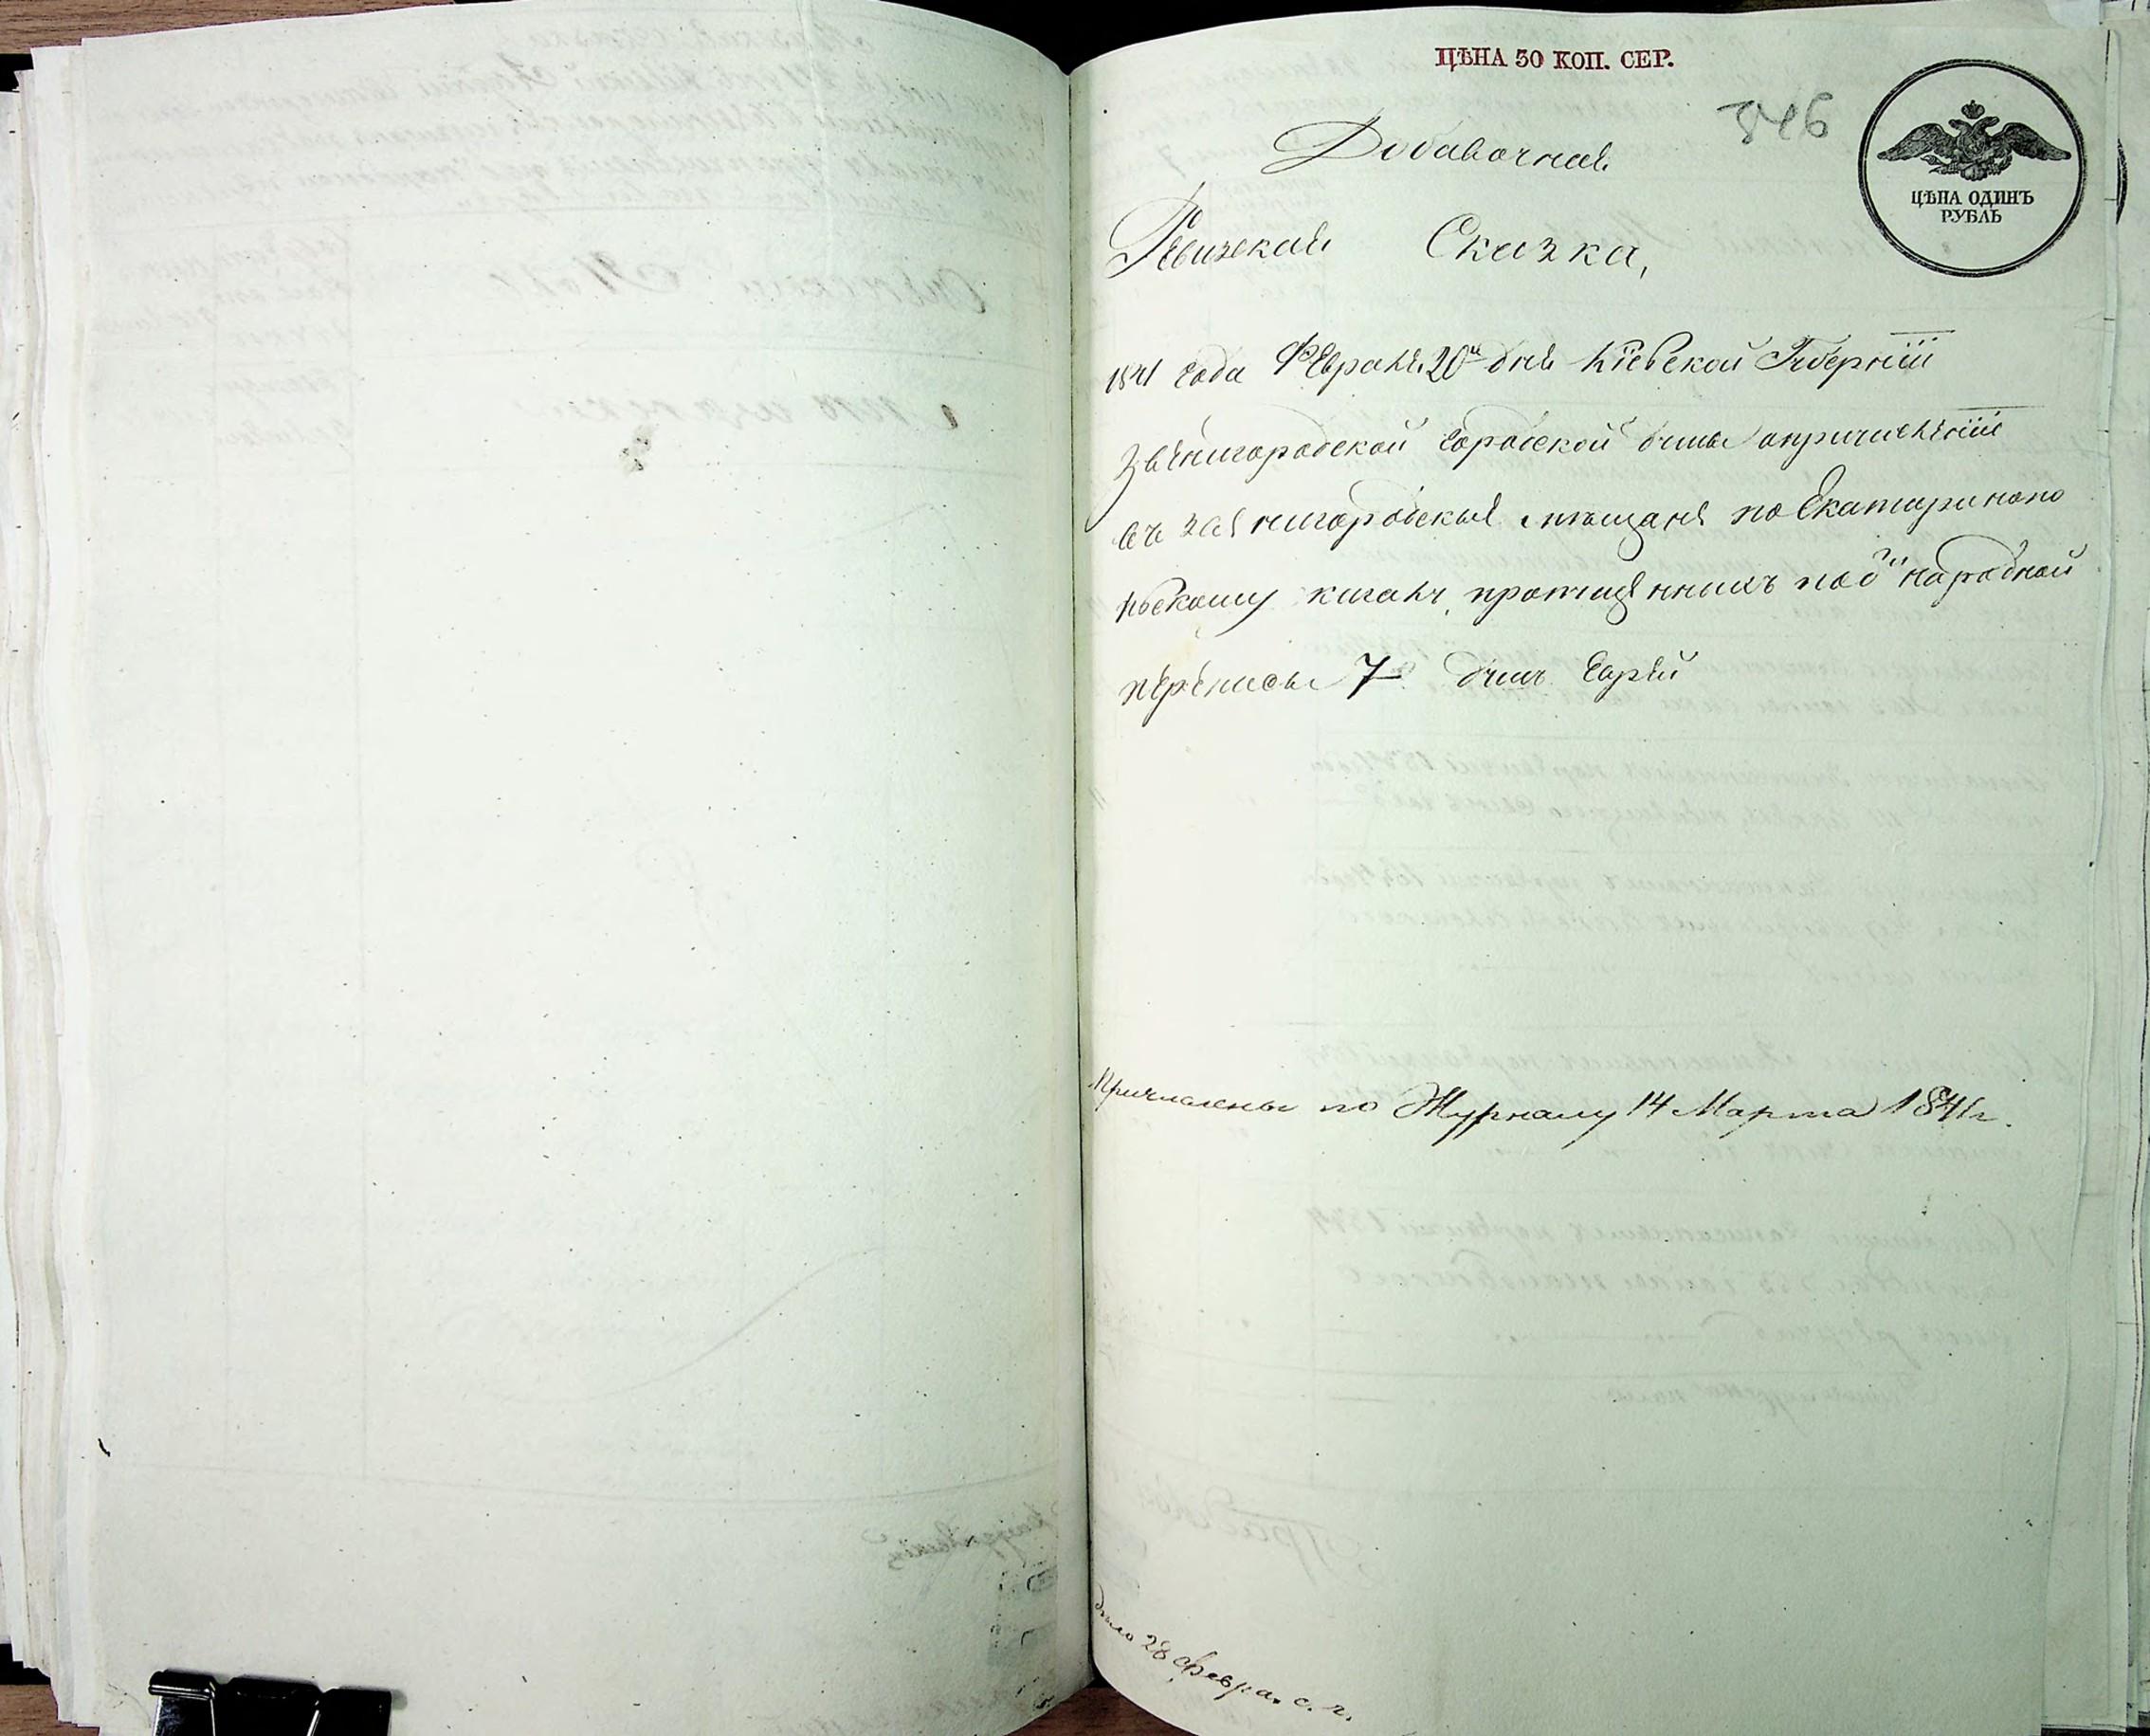 ЦѢНА 30 КОП. СЕР.
346
ЦѢНА ОДИНЪ
РУБЛЬ
Добавочная
Ревизская Сказка,
1841 года Февраля 20го дня Кіевской Губерніи
Звенигородской Городской думы опричисленіи
въ Звенигородские мещане по Екатеринопо
льскому кагалу, пропущенныхъ под народной
переписы 7 душъ Еврей
Причислены по Журналу 14 Марта 1841 г.
28 февра. с. г.